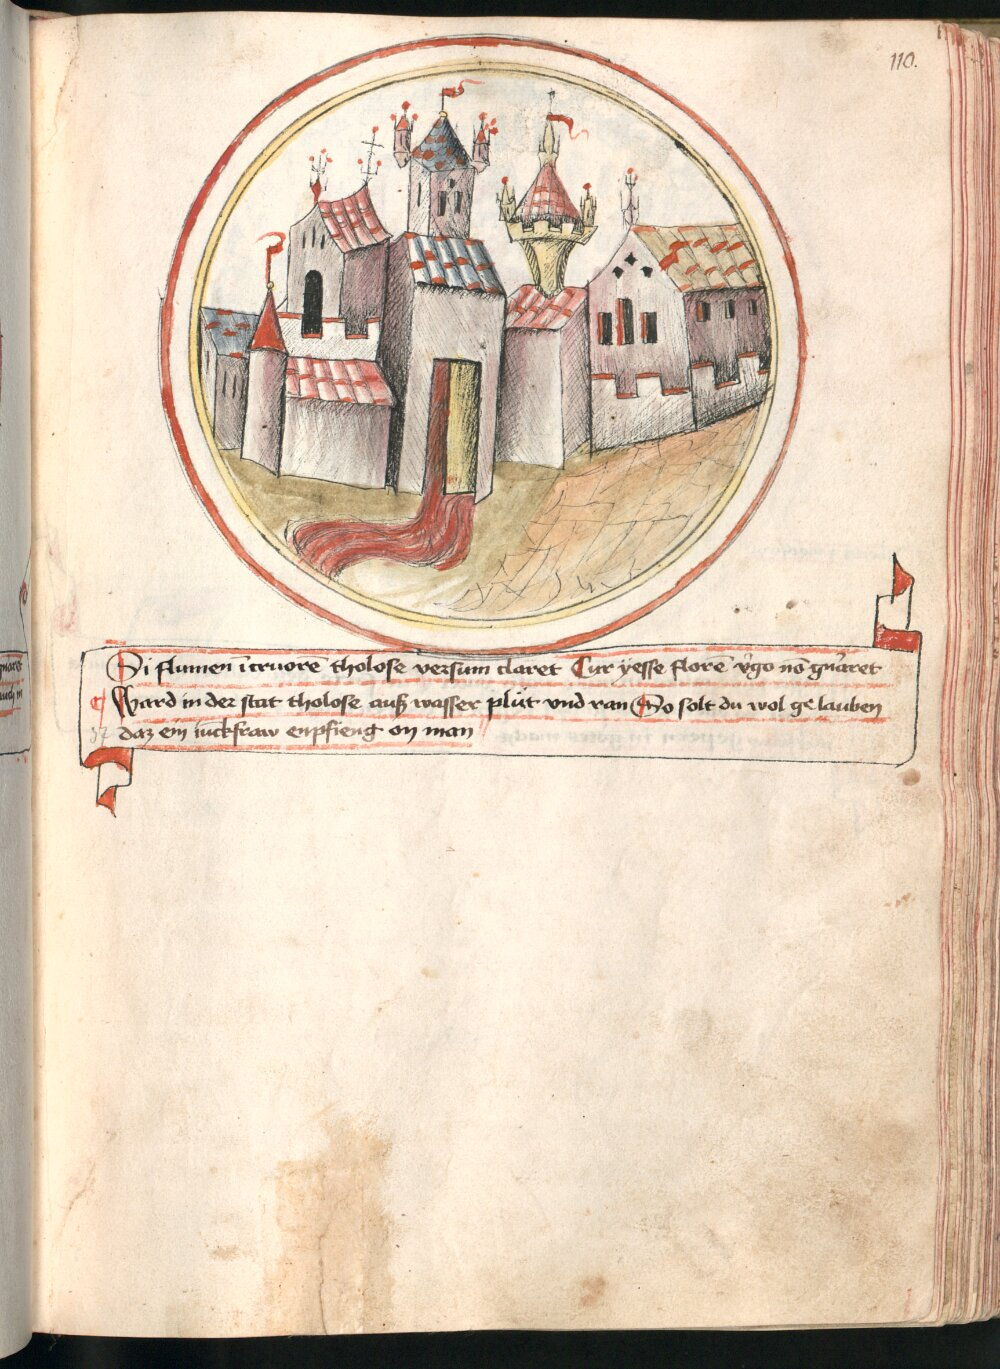 110.
Si flumen ī cruore tholose versum claret Cur yesse flore v̄go nō gn̄aret
¶ Ward in der stat tholose auß wasser plůt vnd ran So solt du wol gelauben
37 daz ein iuckfraw enpfieng on man